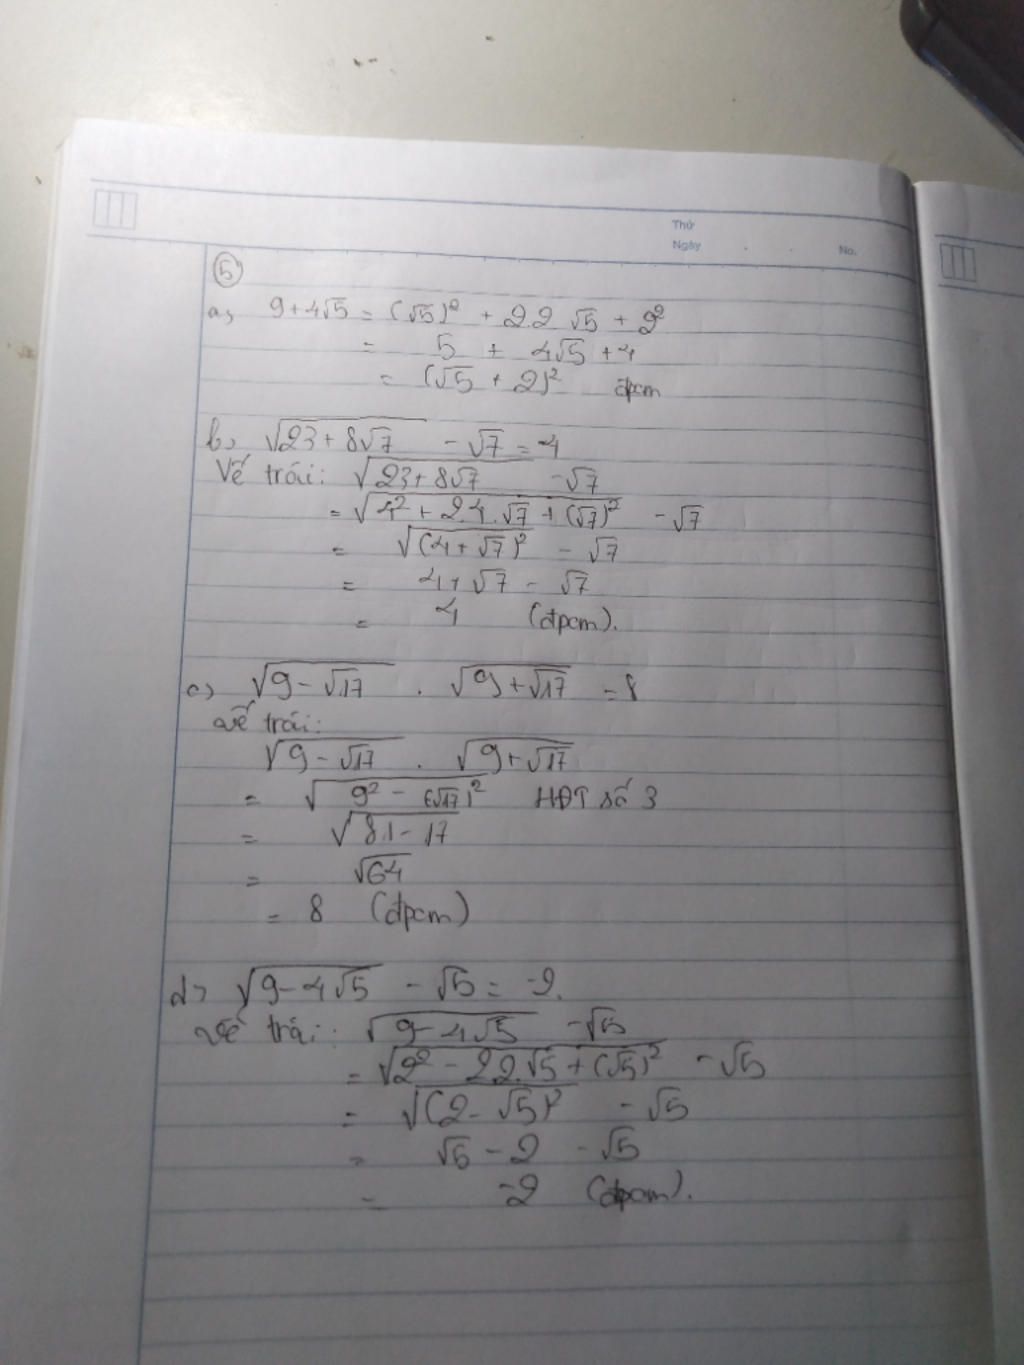 Thứ
Ngày . . No.
5
a, 9+4√5 = (√5)² + 2.2 √5 + 2²
= 5 + 4√5 + 4
= (√5 + 2)² đpcm
b, √(23+8√7) - √7 = 4
Vế trái: √(23+8√7) - √7
= √(4² + 2.4.√7 + (√7)²) - √7
= √((4+√7)²) - √7
= 4+√7 - √7
= 4 (đpcm).
c, √(9-√17) . √(9+√17) = 8
Vế trái:
√(9-√17) . √(9+√17)
= √(9² - (√17)²) HĐT số 3
= √(81-17)
= √64
= 8 (đpcm)
d, √(9-4√5) - √5 = -2.
Vế trái: √(9-4√5) - √5
= √(2² - 2.2.√5 + (√5)²) - √5
= √((2-√5)²) - √5
= √5 - 2 - √5
= -2 (đpcm).